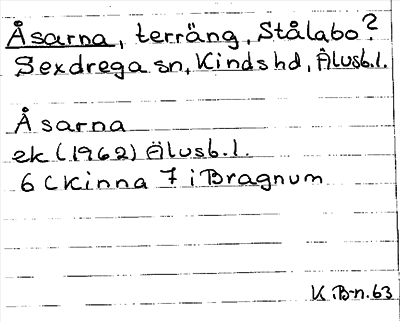 Åsarna, terräng, Stålabo?
Sexdrega sn, Kinds hd, Älvsb.l.
Åsarna
ek (1962) Älvsb.l.
6 C Kinna 7 i Bragnum
K iB-n. 63